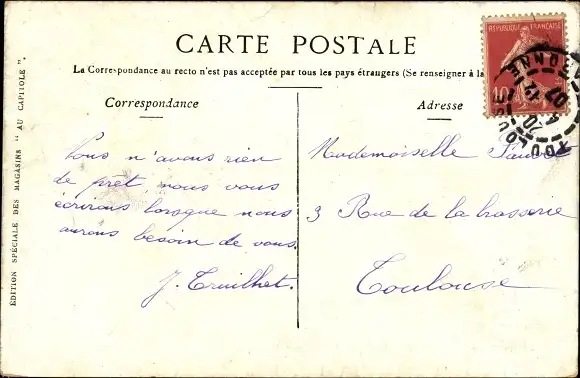 CARTE POSTALE
La Correspondance au recto n'est pas acceptée par tous les pays étrangers (Se renseigner à la
Correspondance
Adresse
REPUBLIQUE FRANÇAISE
10
TOULOUSE
07
Nous n'avons rien
de prêt, nous vous
écrirons lorsque nous
aurons besoin de vous.
J. Truilhet.
Mademoiselle
3 Rue de la brasserie
Toulouse
ÉDITION SPÉCIALE DES MAGASINS "AU CAPITOLE".